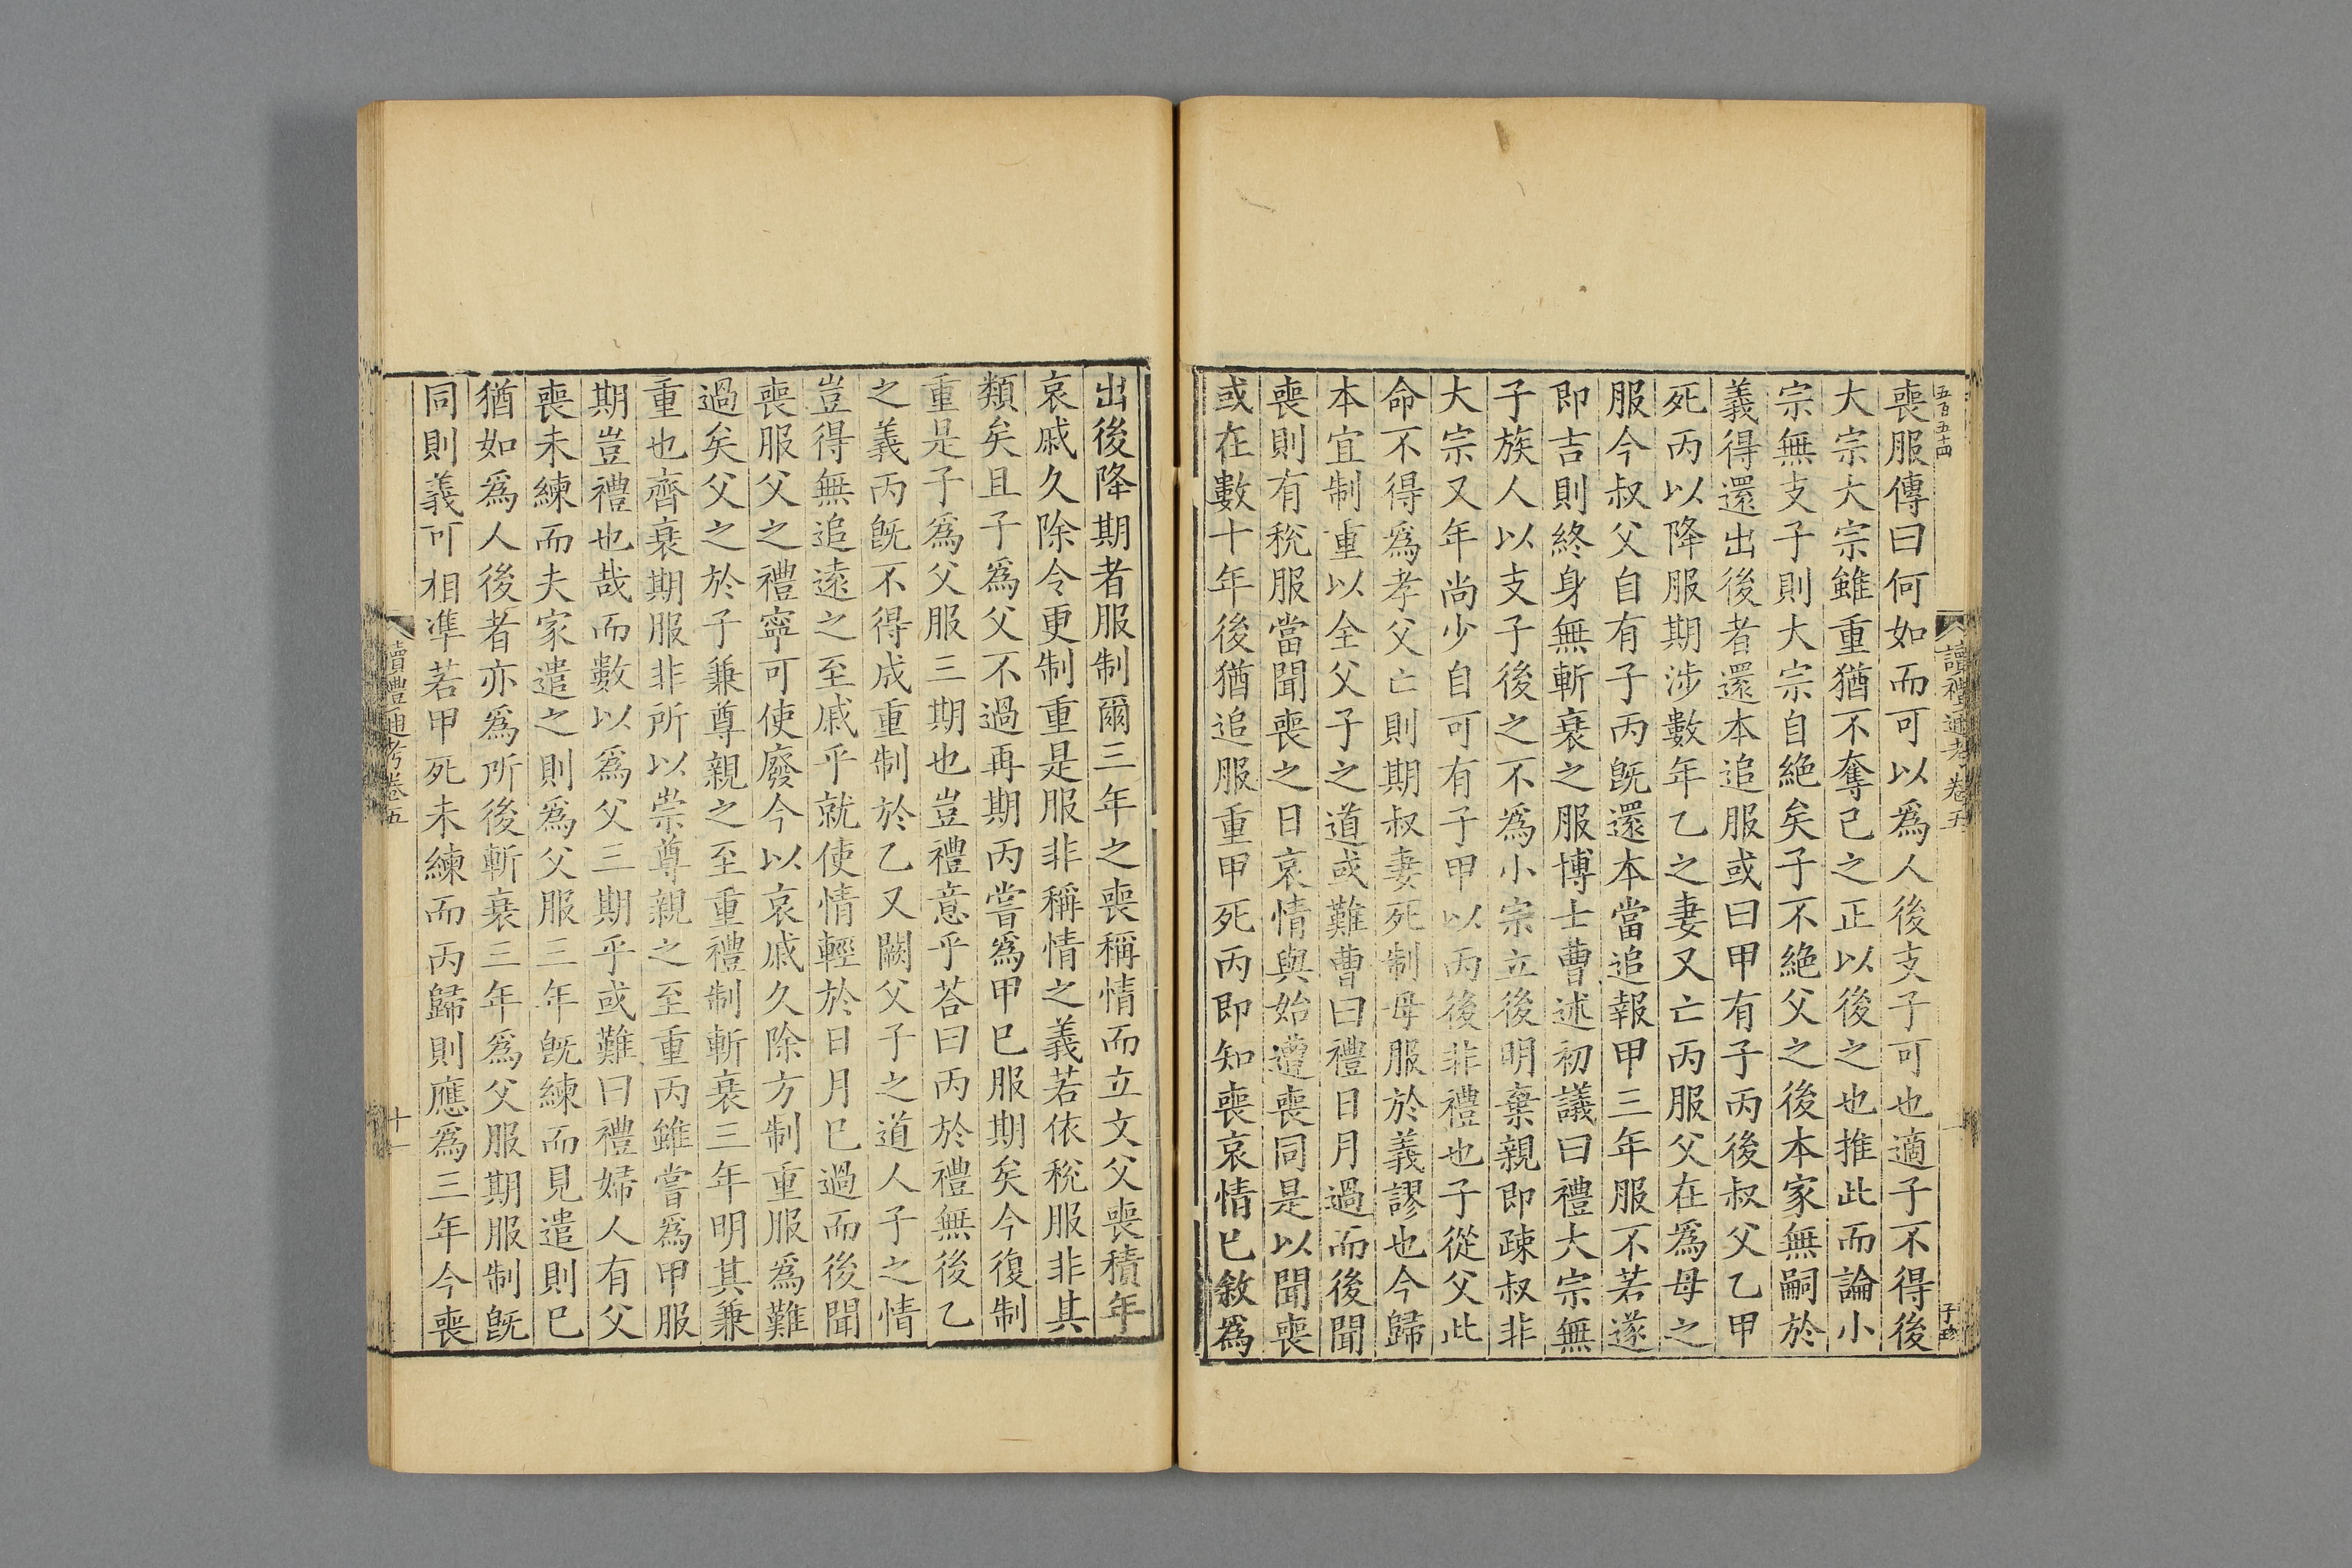 五百五十四
讀禮通考卷五
喪服傳曰何如而可以爲人後支子可也適子不得後
大宗大宗雖重猶不奪己之正以後之也推此而論小
宗無支子則大宗自絶矣子不絶父之後本家無嗣於
義得還出後者還本追服或曰甲有子丙後叔父乙甲
死丙以降服期涉數年乙之妻又亡丙服父在爲母之
服今叔父自有子丙旣還本當追報甲三年服不若遂
即吉則終身無斬衰之服博士曹述初議曰禮大宗無
子族人以支子後之不爲小宗立後明棄親即疎叔非
大宗又年尚少自可有子甲以丙後非禮也子從父此
命不得爲孝父亡則期叔妻死制母服於義謬也今歸
本宜制重以全父子之道或難曹曰禮日月過而後聞
喪則有稅服當聞喪之日哀情與始遭喪同是以聞喪
或在數十年後猶追服重甲死丙即知喪哀情巳敘爲
出後降期者服制爾三年之喪稱情而立文父喪積年
哀戚久除令更制重是服非稱情之義若依稅服非其
類矣且子爲父不過再期丙嘗爲甲巳服期矣今復制
重是子爲父服三期也豈禮意乎荅曰丙於禮無後乙
之義丙旣不得成重制於乙又闕父子之道人子之情
豈得無追遠之至戚乎就使情輕於日月巳過而後聞
喪服父之禮寧可使廢今以哀戚久除方制重服爲難
過矣父之於子兼尊親之至重禮制斬衰三年明其兼
重也齊衰期服非所以崇尊親之至重丙雖嘗爲甲服
期豈禮也哉而數以爲父三期乎或難曰禮婦人有父
喪未練而夫家遣之則爲父服三年旣練而見遣則巳
猶如爲人後者亦爲所後斬衰三年爲父服期服制旣
同則義可相準若甲死未練而丙歸則應爲三年今喪
讀禮通考卷五
十一